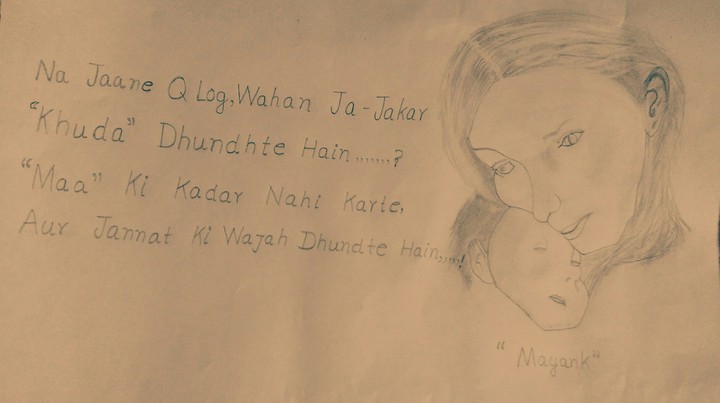 Na Jaane Q Log, Wahan Ja-Jakar
"Khuda" Dhundhte Hain,,,,,,,?
"Maa" Ki Kadar Nahi Karte,
Aur Jannat Ki Wajah Dhundte Hain,,,,,!
"Mayank"